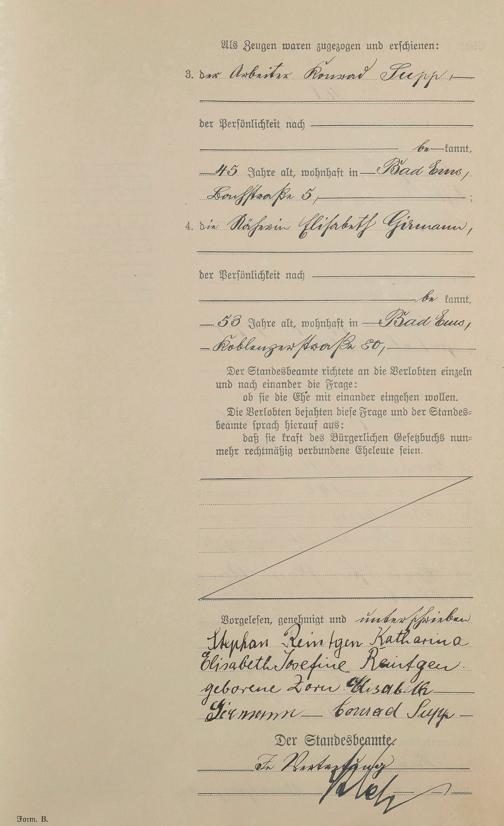 Als Zeugen waren zugezogen und erschienen:
3. der Arbeiter Konrad Supp,
der Persönlichkeit nach
be kannt,
45 Jahre alt, wohnhaft in Bad Ems,
Bachstraße 5, ;
4. die Näherin Elisabeth Girmann,
der Persönlichkeit nach
be kannt,
53 Jahre alt, wohnhaft in Bad Ems,
Koblenzerstraße 80,
Der Standesbeamte richtete an die Verlobten einzeln
und nach einander die Frage:
ob sie die Ehe mit einander eingehen wollen.
Die Verlobten bejahten diese Frage und der Standes-
beamte sprach hierauf aus:
daß sie kraft des Bürgerlichen Gesetzbuchs nun-
mehr rechtmäßig verbundene Eheleute seien.
Vorgelesen, genehmigt und unterschrieben
Stephan Reintgen Katharina
Elisabeth Josefine Reintgen
geborene Zorn Elisabeth
Girmann Conrad Supp
Der Standesbeamte.
In Vertretung
Form. B.